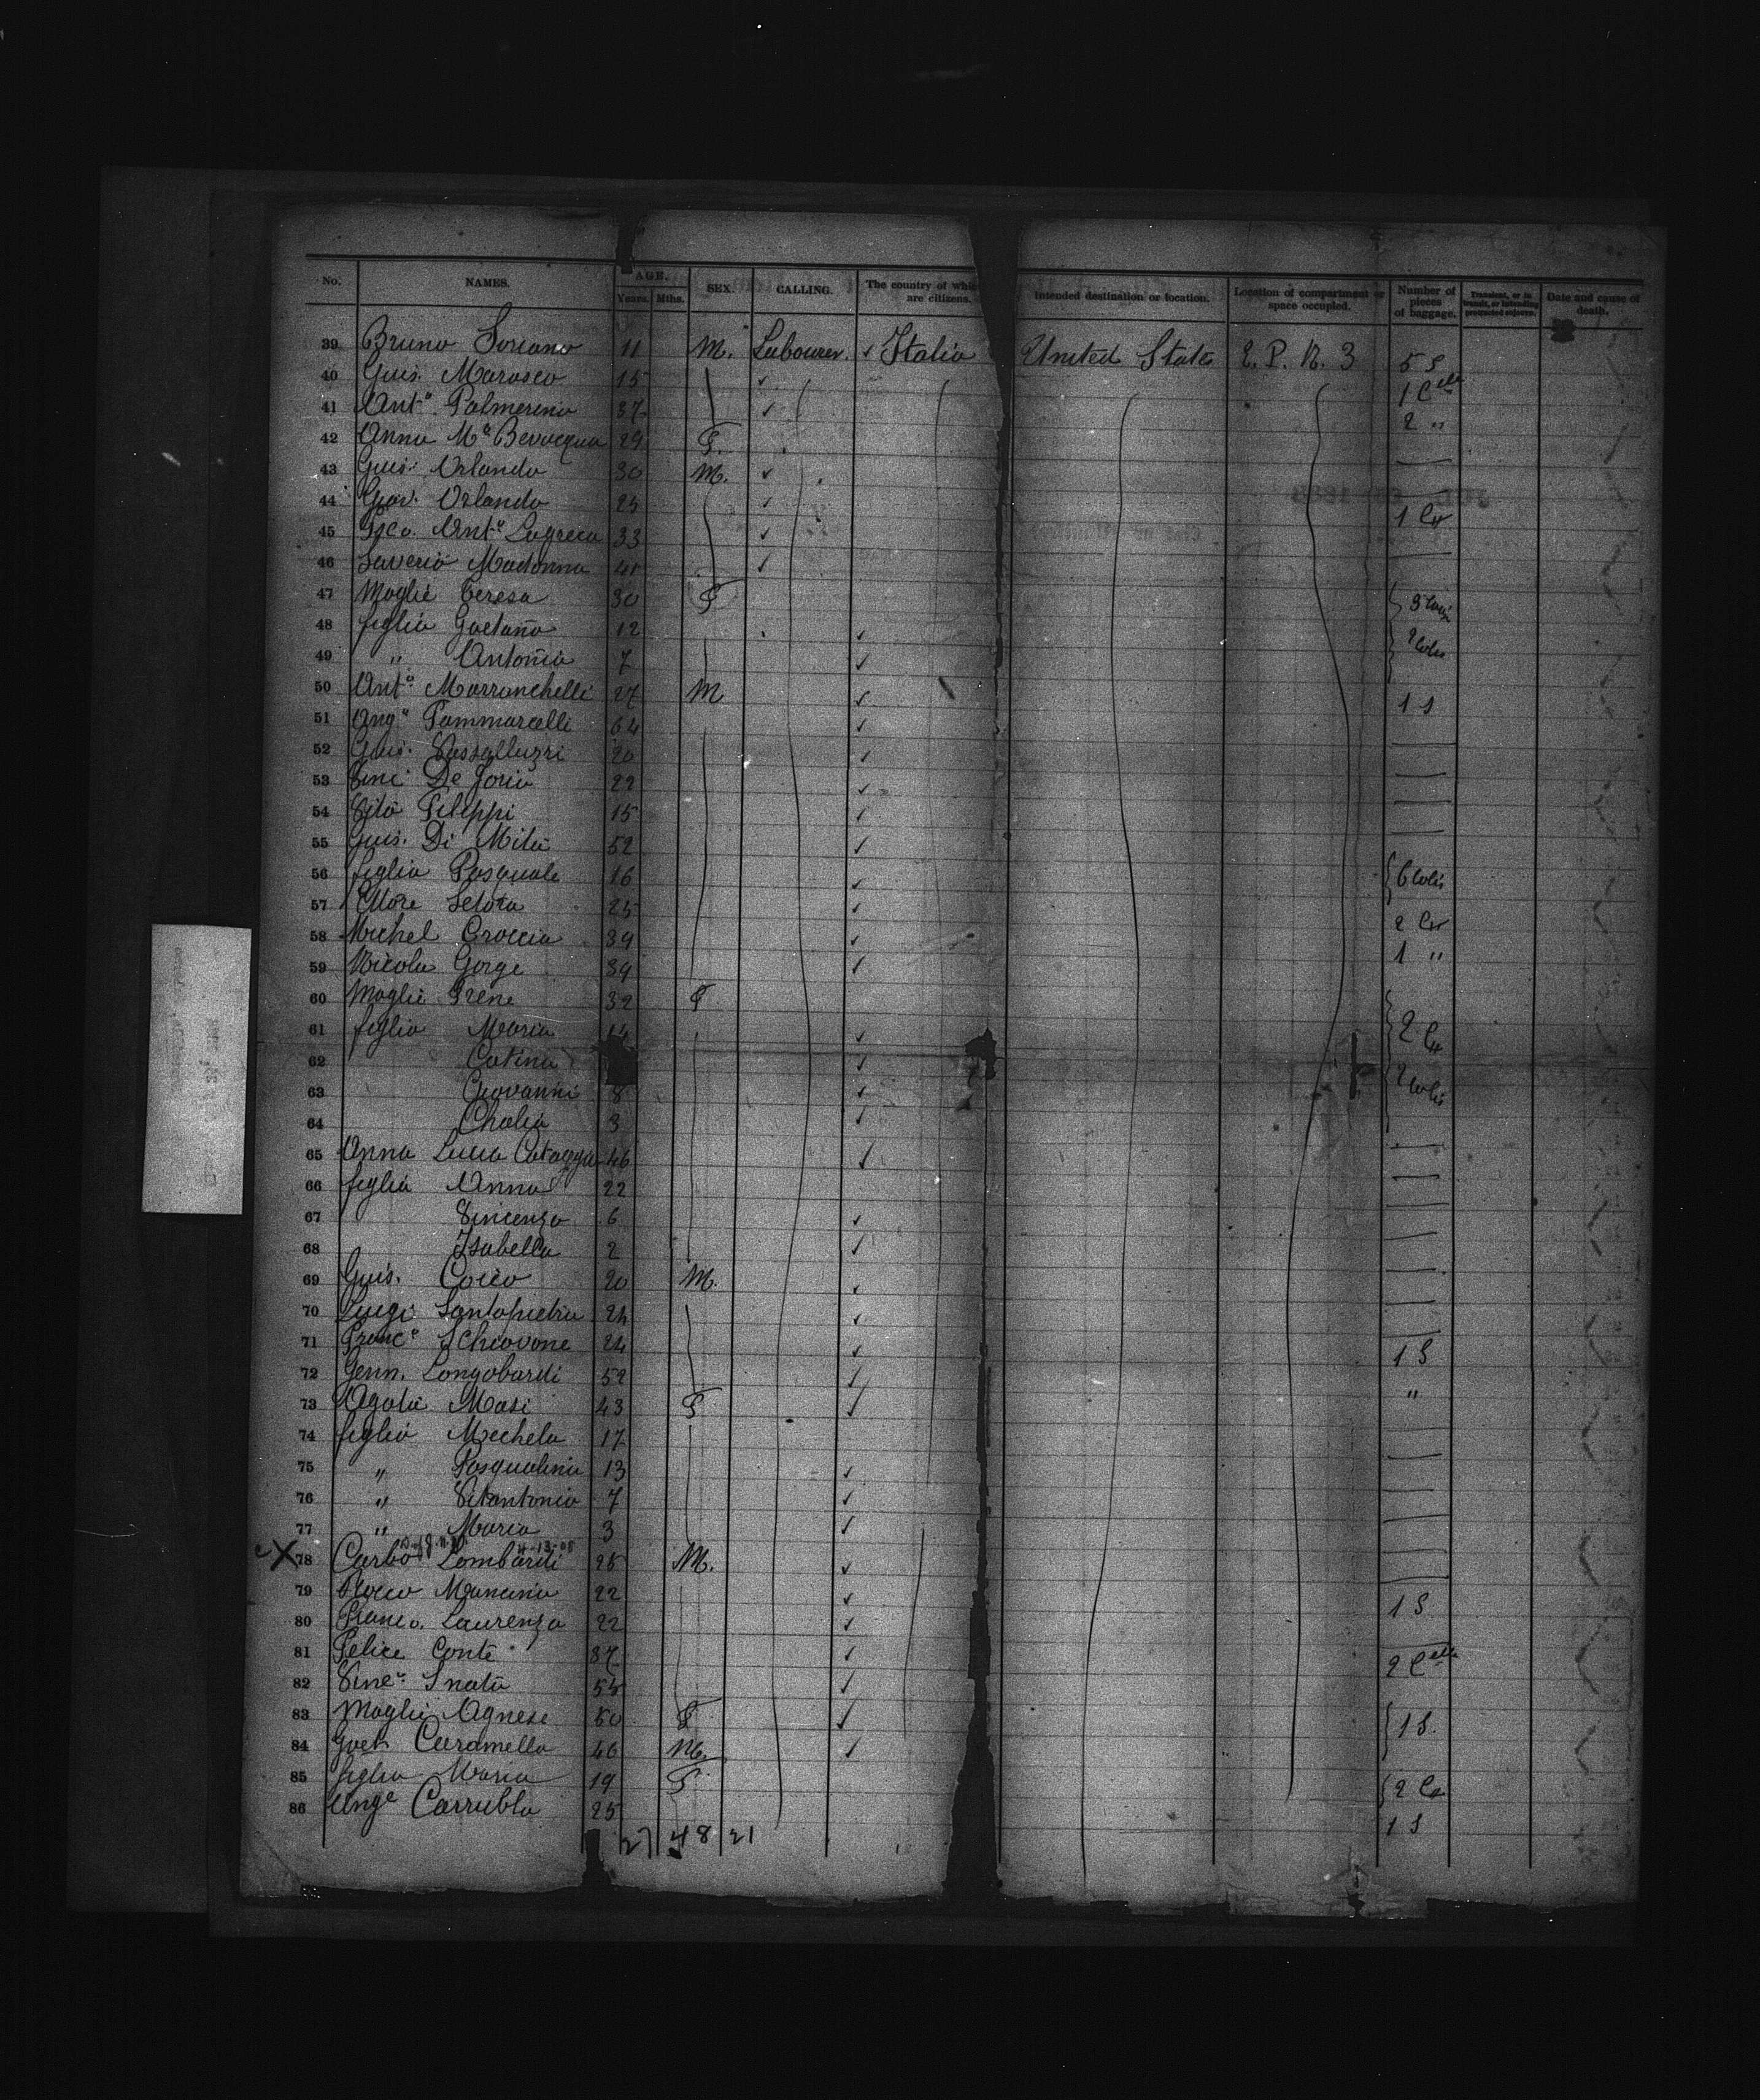 No. NAMES. AGE. Years. Mths. SEX. CALLING. The country of whi are citizens. Intended destination or location. Location of compartment or space occupied. Number of pieces of baggage. Transient, or in transit, or intending protracted sojourn. Date and cause of death.
39 Bruno Soriano 11 M. Labourer. Italia United State E. P. N. 3 5 S
40 Guis. Marasco 15 1 Celle
41 Anto. Palmerino 37 2 "
42 Anna Ma Bevacqua 29 F.
43 Guis. Orlando 30 M.
44 Giov. Orlando 25 1 Cr
45 Fsco. Anto Lagreca 33
46 Saverio Madonna 41
47 Moglie Teresa 30 F
48 figlio Gaetano 12
49 " Antonia 7
50 Anto Marranchelli 27 M 1 S
51 Ango Pammarcelli 64
52 Guis. Vassalluzzi 20
53 De Jorio 22
54 Vito Filippi 15
55 Guis. Di Mita 52
56 figlio Pasquale 16 6 Colis
57 Ettore 25 2 Cr
58 Michel Croccia 39 1 "
59 Nicola Gorge 39
60 Moglie Irene 32 F
61 figlia Maria 14 2 Cr
62 Catina
63 Giovanni 8 2 Colis
64 3
65 Anna Lucia 46
66 figlia Anna 22
67 Vincenzo 6
68 Isabella 2
69 Guis. Cocco 20 M.
70 Luigi Santopietro 24
71 Franc. Schiavone 24 1 S
72 Genn. Longobardi 52 "
73 Agata Masi 43 F
74 figlia Michela 17
75 " Pasqualina 13
76 " Vitantonio 7
77 " Maria 3
4-13-08
X 78 Carlo Lombardi 25 M.
79 Rocco Mancino 22 1 S
80 Franco. Laurenza 22
81 Felice Conte 37 2 Celle
82 54
83 Moglie Agnese 50 F 1 S.
84 Caramella 46 M.
85 figlia Maria 19 F 2 Cr
86 Ange Carrubba 25 1 S
27 48 21